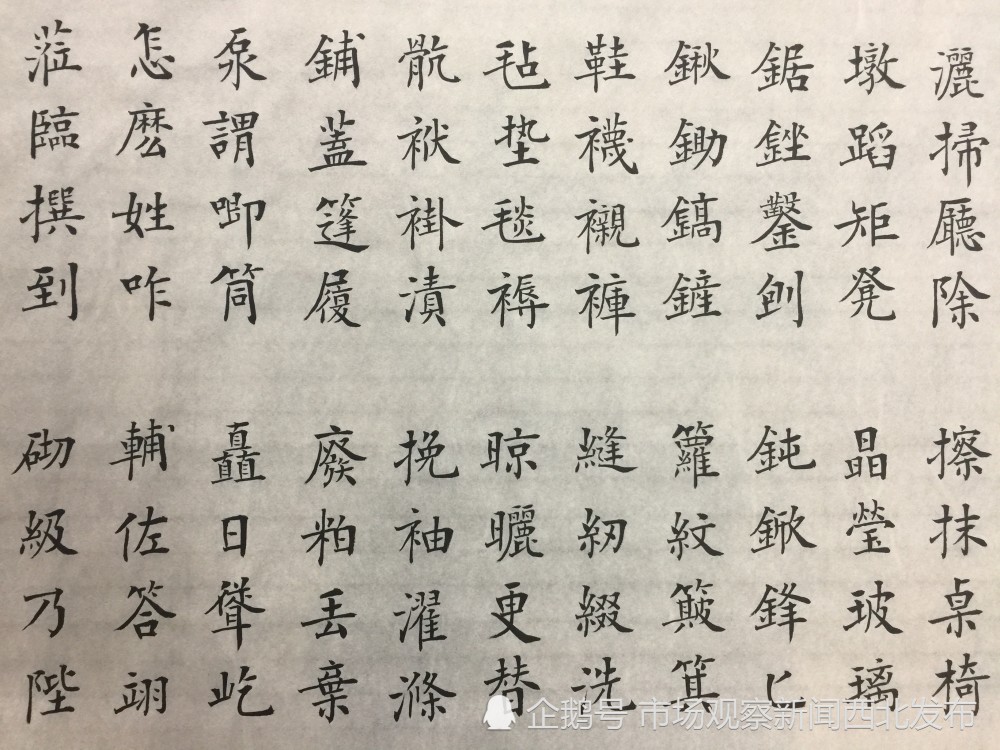 灑掃廳除 擦抹桌椅
墩蹈矩凳 晶瑩玻璃
鋸銼鑿刨 鈍鍁鋒匕
鍬鋤鎬鏟 籮紋簸箕
鞋襪襯褲 縫紉綴洗
毡垫毯褥 晾曬更替
骯袱褂漬 挽袖濯滌
鋪蓋篷履 廢粕丟棄
泵謂唧筒 矗日聳屹
怎麽姓咋 輔佐答翊
蒞臨撰到 砌級乃陛
企鹅号 市场观察新闻西北发布